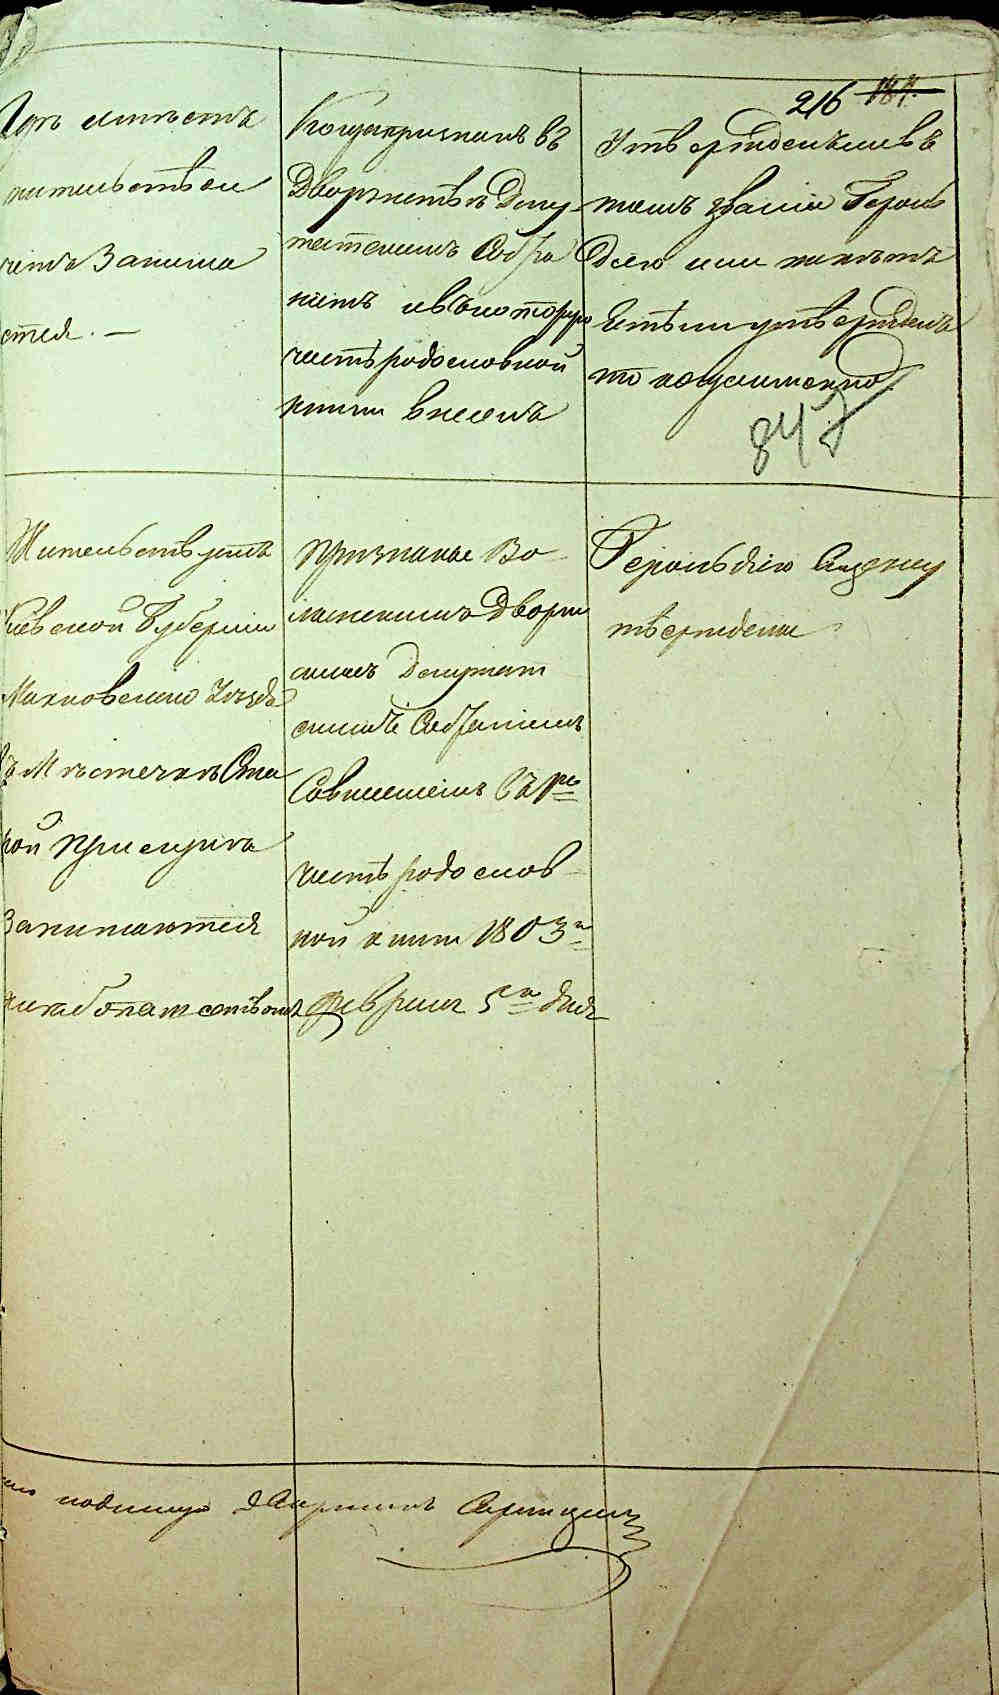 216 187.
Гдѣ имѣетъ
жительство и
чемъ занима
ется. —
Когда признанъ въ
Дворянствѣ Депу
татскимъ Собра
ніемъ и въ которую
часть родословной
книги внесенъ
Утвержденъ ли въ
томъ званіи Героль
діею или нѣтъ
Есть ли утвержденъ
то когда именно
847
Жительствуютъ
Кіевской Губерніи
Махновскаго Уѣзда
въ Мѣстечкѣ Ста
рой Прилукѣ
Занимаются
хлебопашествомъ
признаны Во
лынскимъ Дворян
скимъ Депутат
скимъ Собраніемъ
Совнесеніемъ въ 1ю
часть родослов
ной книги 1803го
февраля 5го дня
Герольдіею не
тверждены
подпишу Мартинъ